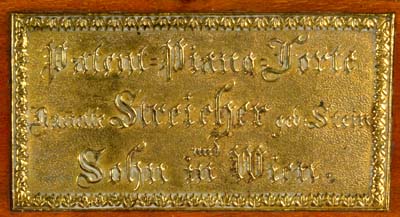 Patent=Piano=Forte
Nanette Streicher geb Stein
und
Sohn in Wien.